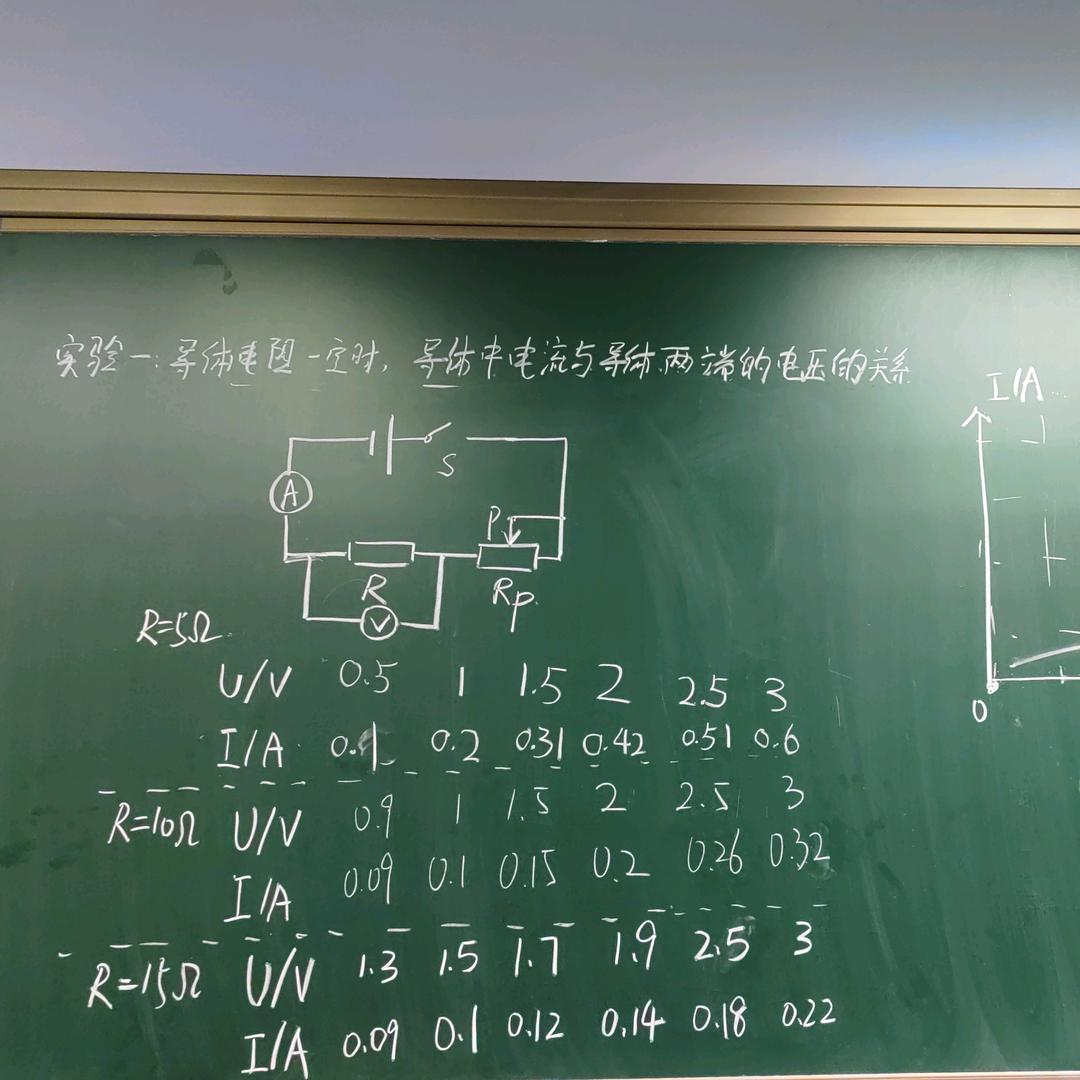 实验一:导体电阻一定时,导体中电流与导体两端的电压的关系
I/A
S
A
P
R
Rp
V
R=5Ω
U/V 0.5 1 1.5 2 2.5 3
I/A 0.1 0.2 0.31 0.42 0.51 0.6
0
R=10Ω U/V 0.9 1 1.5 2 2.5 3
I/A 0.09 0.1 0.15 0.2 0.26 0.32
R=15Ω U/V 1.3 1.5 1.7 1.9 2.5 3
I/A 0.09 0.1 0.12 0.14 0.18 0.22